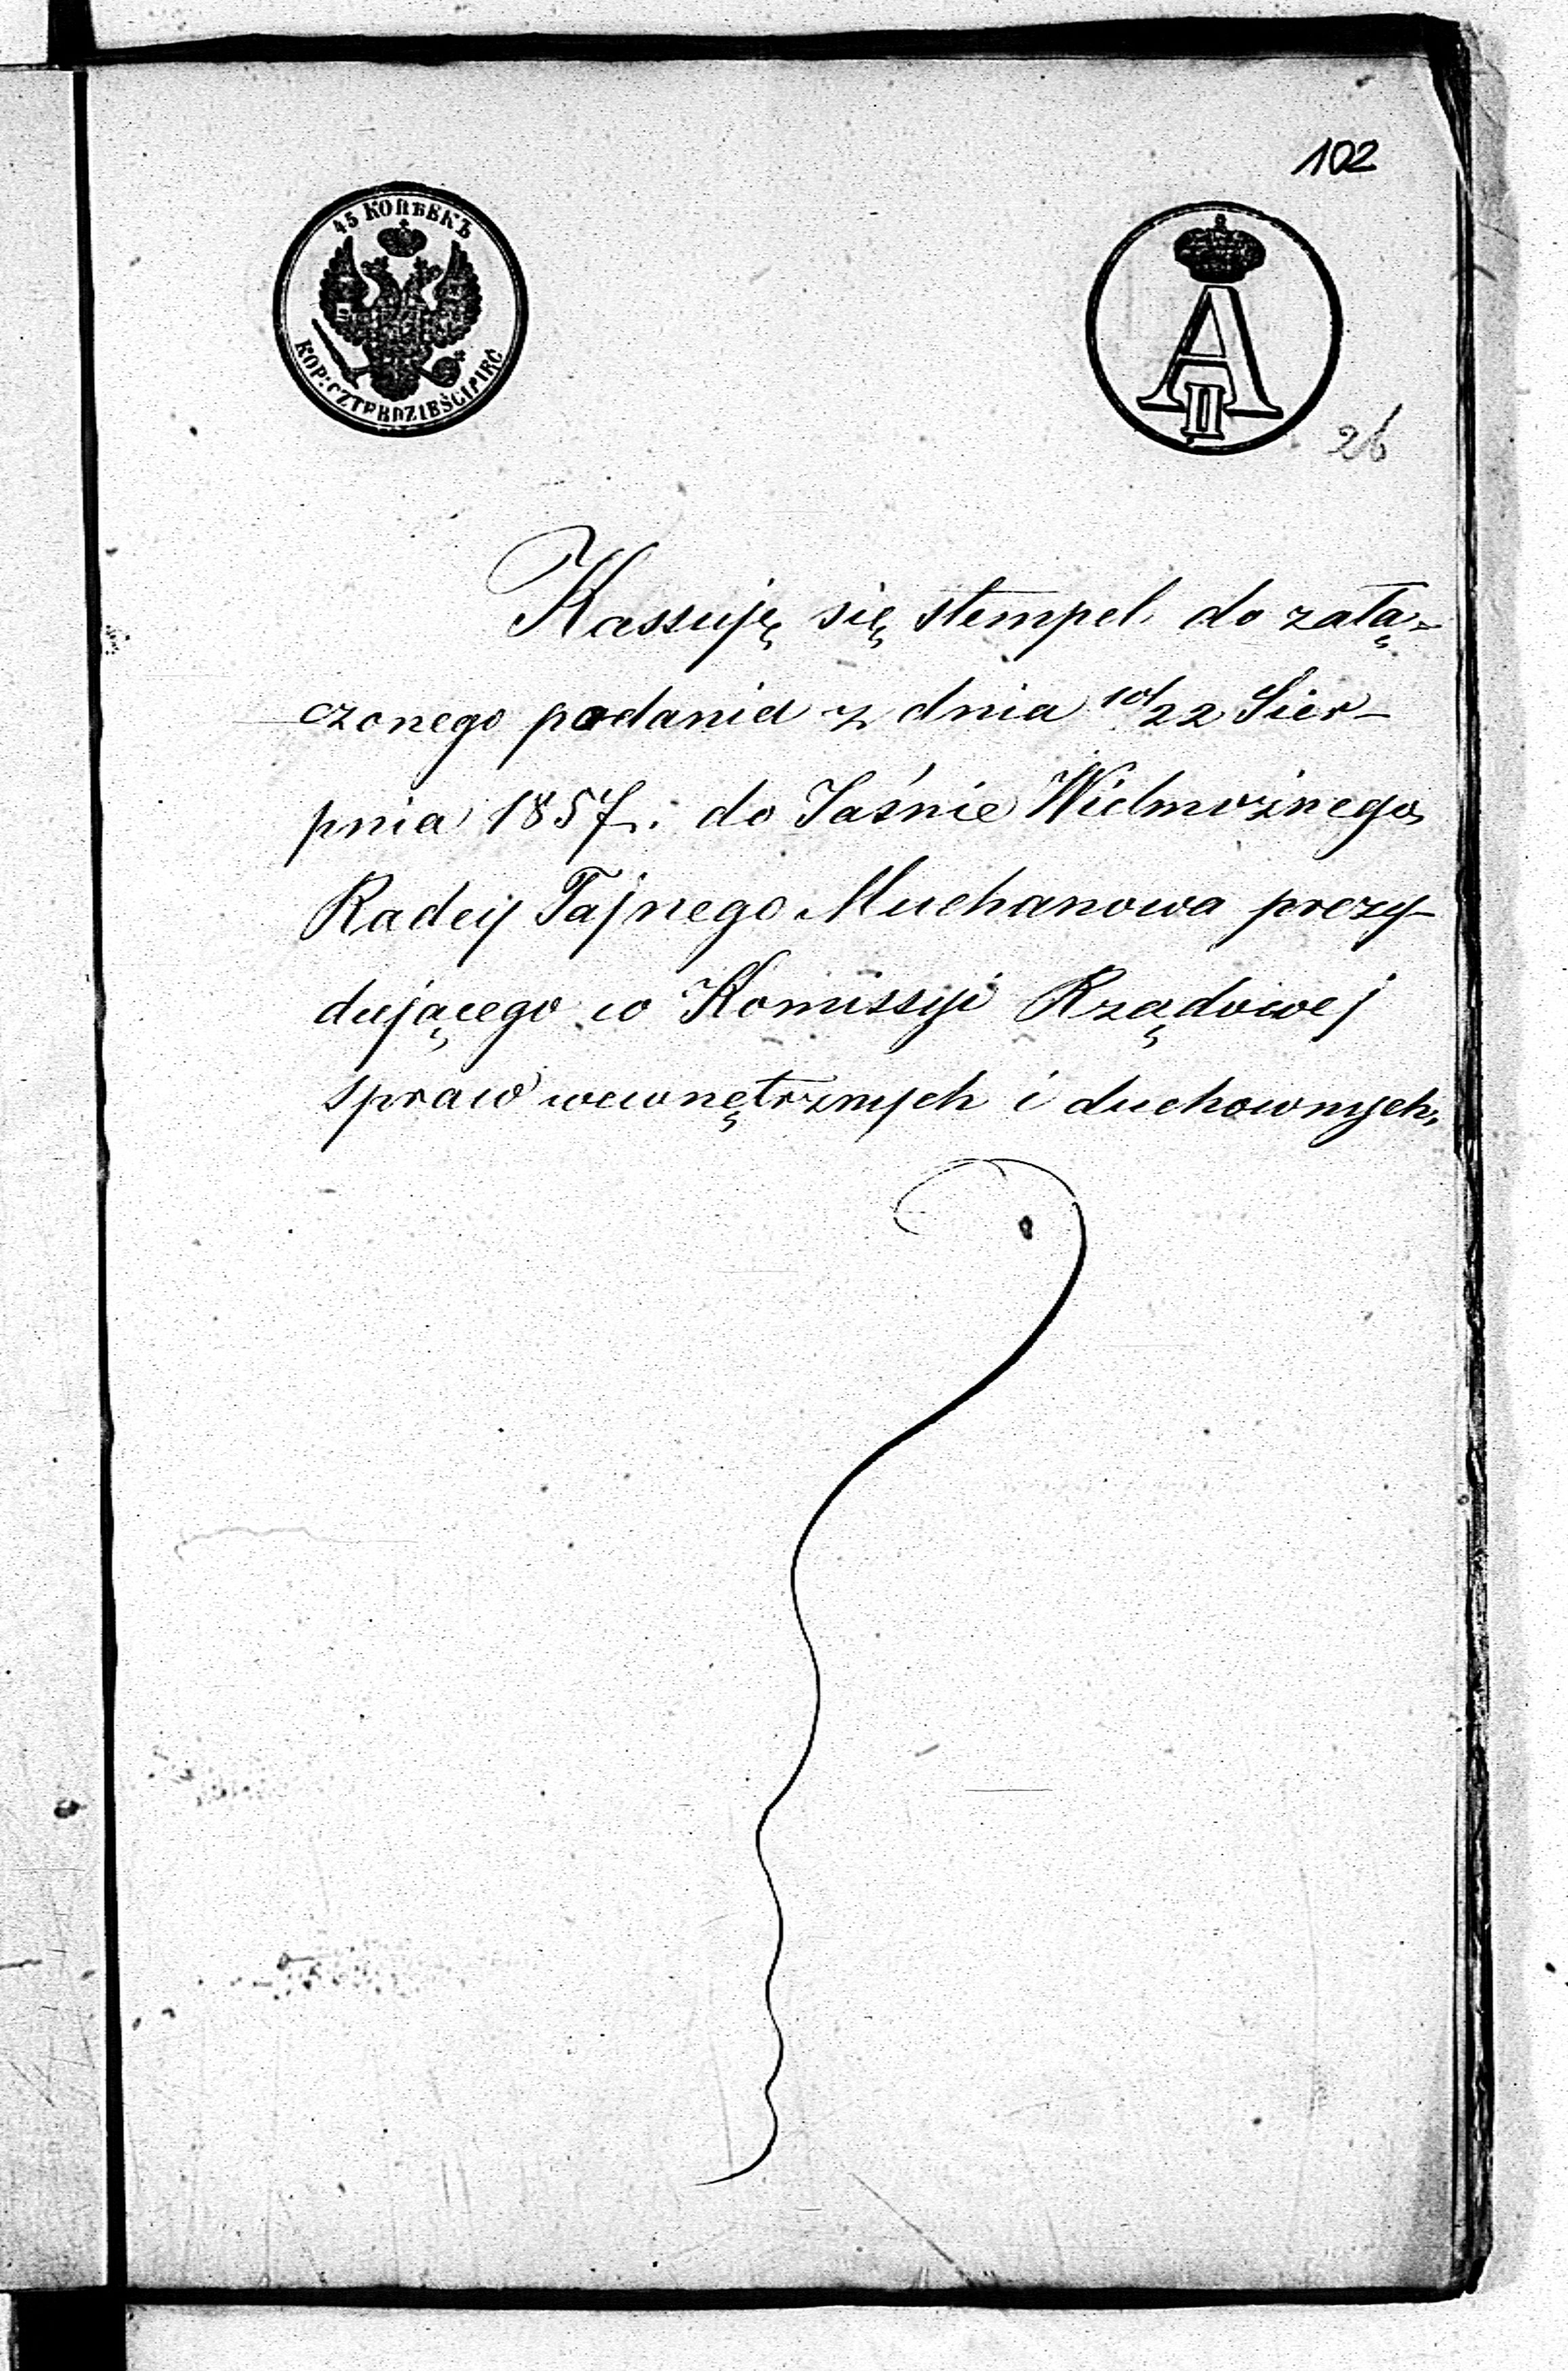 102
45 КОПѢЕКЪ
KOP: CZTERDZIEŚCI PIĘĆ
A II
26
Kassuję się stempel do załą-
czonego podania z dnia 10/22 Sier-
pnia 1857 r. do Jaśnie Wielmożnego
Radcy Tajnego Muchanowa prezy-
dującego w Komissyi Rządowej
spraw wewnętrznych i duchownych,